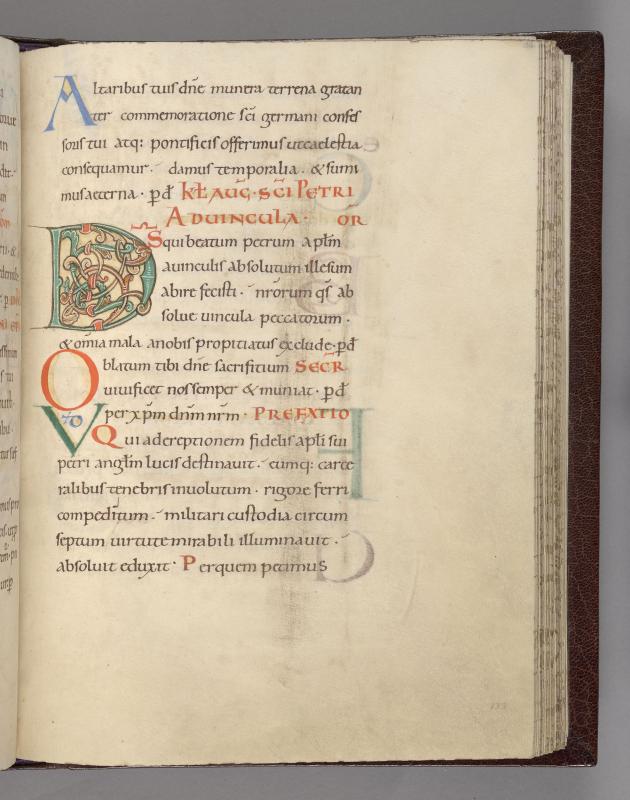 Altaribus tuis dñe munera terrena gratan
ter commemoratione sc̄i germani confes
soris tui atq: pontificis offerimus utcaelestia
consequamur. damus temporalia. & sumi
mus aeterna. p̄d kł auḡ. sc̄i petri
Aduincula. or
D s̄ qui beatum petrum apłm
auinculis absolutum illesum
abire fecisti. nr̄orum qs̄ ab
solue uincula peccatorum.
& om̄ia mala anobis propitiatus exclude. p̄d
Oblatum tibi dñe sacrifitium secr̄
uiuificet nos semper & muniat. p̄d
V per xp̄m dnm̄ nr̄m. prefatio
Qui adereptionem fidelis apłi sui
petri angłm lucis destinauit. eumq: carce
ralibus tenebris inuolutum. rigore ferri
compeditum. militari custodia circum
septum uirtute mirabili illuminauit.
absoluit eduxit. Per quem petimus